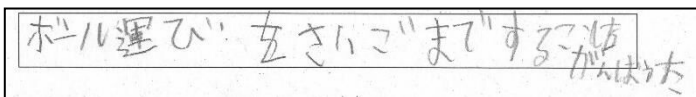 ボール運び をさいごまですること
がんばった